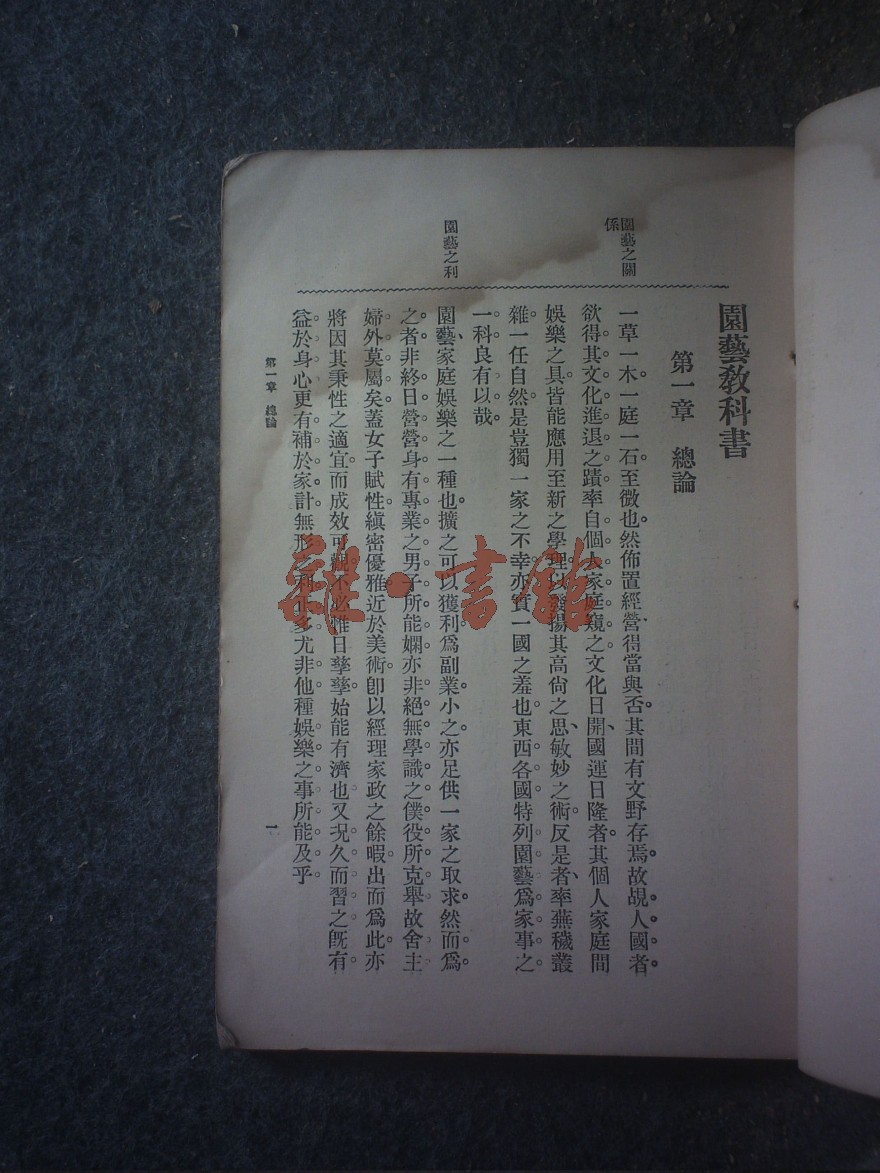 園藝教科書
第一章　總論
園藝之關
係
一草一木一庭一石至微也。然佈置經營得當與否、其間有文野存焉。故覘人國者。
欲得其文化進退之蹟率自個人家庭窺之。文化日開、國運日隆者。其個人家庭間
娛樂之具。皆能應用至新之學理以發揚其高尙之思、敏妙之術。反是者、率蕪穢叢
雜一任自然。是豈獨一家之不幸。亦實一國之羞也。東西各國特列園藝爲家事之
一科良有以哉。
園藝之利
園藝家庭娛樂之一種也。擴之可以獲利爲副業。小之亦足供一家之取求。然而爲
之者。非終日營營身有專業之男子所能嫻。亦非絕無學識之僕役所克舉。故舍主
婦外莫屬矣。蓋女子賦性縝密優雅近於美術。卽以經理家政之餘暇。出而爲此。亦
將因其秉性之適宜。而成效可觀。不必惟日孳孳。始能有濟也。又况久而習之。旣有
益於身心。更有補於家計。無形之利正多。尤非他種娛樂之事所能及乎
第一章　總論
一
雜·書館